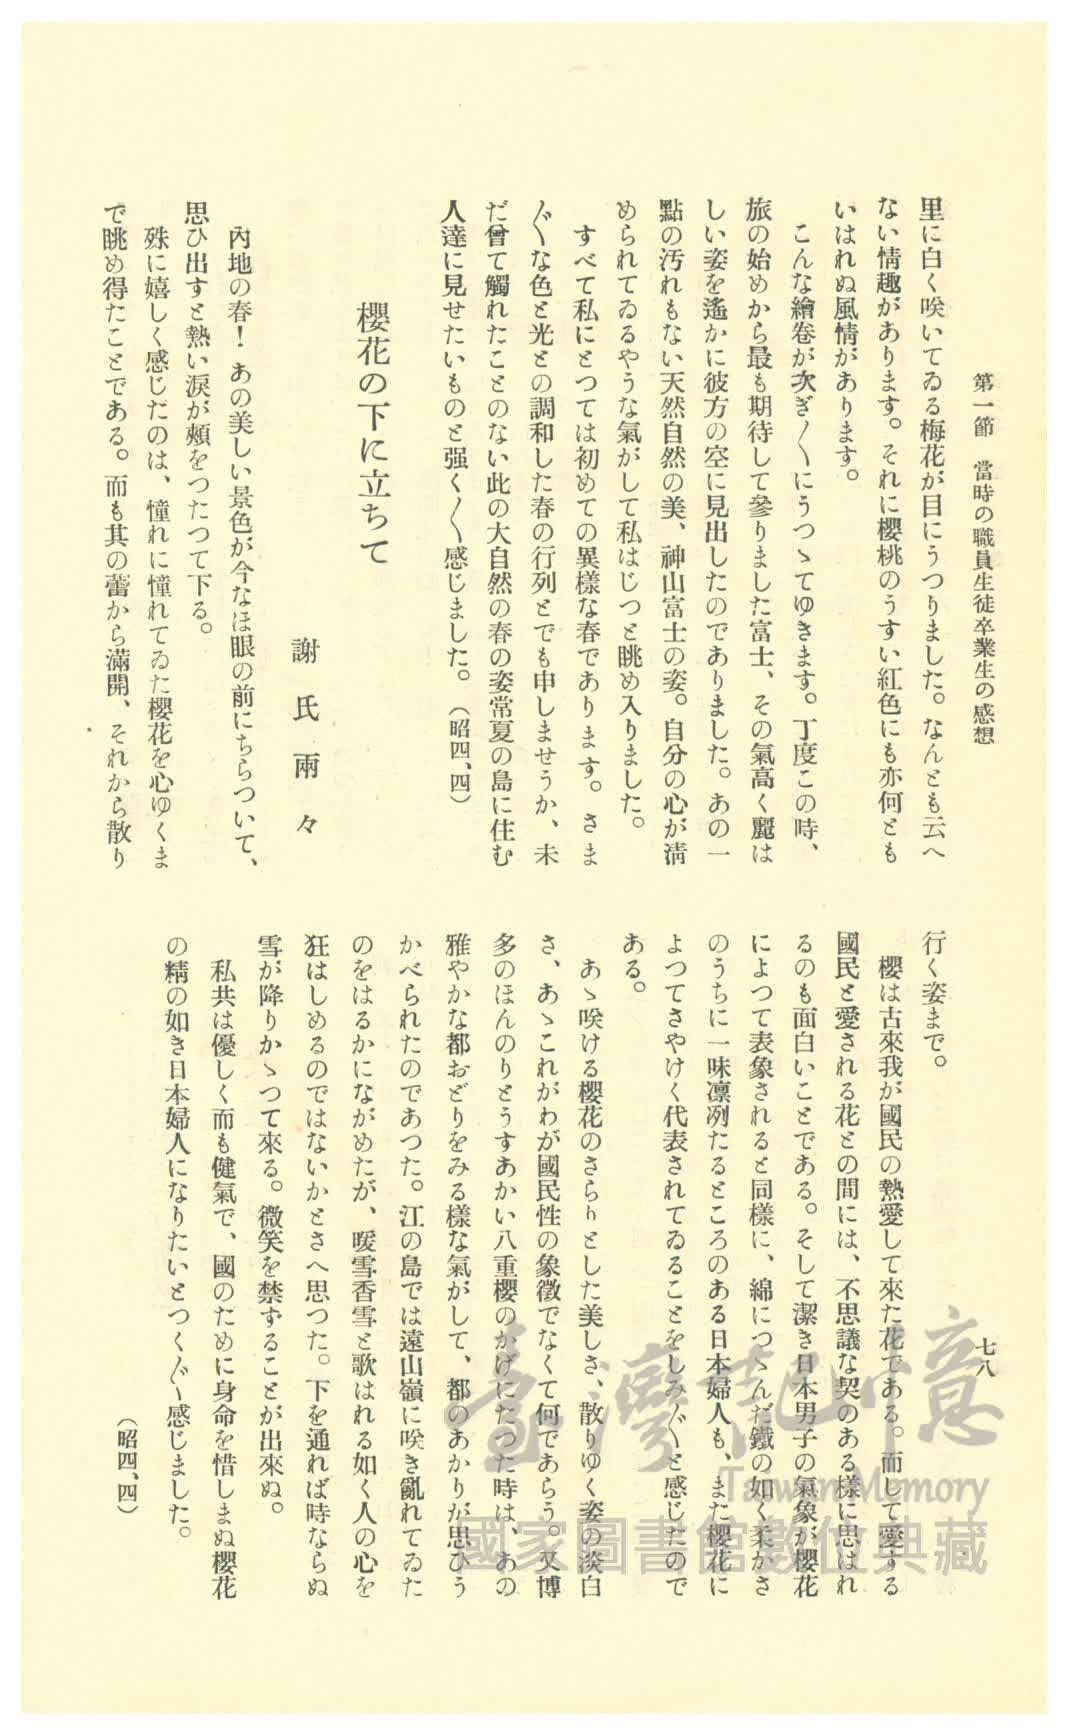 第一節　當時の職員生徒卒業生の感想
七八
里に白く咲いてゐる梅花が目にうつりました。なんとも云へ
ない情趣があります。それに櫻桃のうすい紅色にも亦何とも
いはれぬ風情があります。
こんな繪卷が次ぎ〱にうつゝてゆきます。丁度この時、
旅の始めから最も期待して參りました富士、その氣高く麗は
しい姿を遙かに彼方の空に見出したのでありました。あの一
點の汚れもない天然自然の美、神山富士の姿。自分の心が淸
められてゐるやうな氣がして私はじつと眺め入りました。
すべて私にとつては初めての異樣な春であります。さま
〲な色と光との調和した春の行列とでも申しませうか、未
だ曾て觸れたことのない此の大自然の春の姿常夏の島に住む
人達に見せたいものと强く〱感じました。（昭四、四）
櫻花の下に立ちて
謝氏兩々
內地の春！　あの美しい景色が今なほ眼の前にちらついて、
思ひ出すと熱い淚が頰をつたつて下る。
殊に嬉しく感じたのは、憧れに憧れてゐた櫻花を心ゆくま
で眺め得たことである。而も其の蕾から滿開、それから散り
行く姿まで。
櫻は古來我が國民の熱愛して來た花である。而して愛する
國民と愛される花との間には、不思議な契のある樣に思はれ
るのも面白いことである。そして潔き日本男子の氣象が櫻花
によつて表象されると同樣に、綿につゝんだ鐵の如く柔かさ
のうちに一味凛冽たるところのある日本婦人も、また櫻花に
よつてさやけく代表されてゐることをしみ〲と感じたので
ある。
あゝ咲ける櫻花のさらりとした美しさ、散りゆく姿の淡白
さ、あゝこれがわが國民性の象徵でなくて何であらう。又博
多のほんのりとうすあかい八重櫻のかげにたつた時は、あの
雅やかな都おどりをみる樣な氣がして、都のあかりが思ひう
かべられたのであつた。江の島では遠山嶺に咲き亂れてゐた
のをはるかにながめたが、暖雪香雪と歌はれる如く人の心を
狂はしめるのではないかとさへ思つた。下を通れば時ならぬ
雪が降りかゝつて來る。微笑を禁ずることが出來ぬ。
私共は優しく而も健氣で、國のために身命を惜しまぬ櫻花
の精の如き日本婦人になりたいとつく〲感じました。
（昭四、四）
臺灣記憶
Taiwan Memory
國家圖書館數位典藏